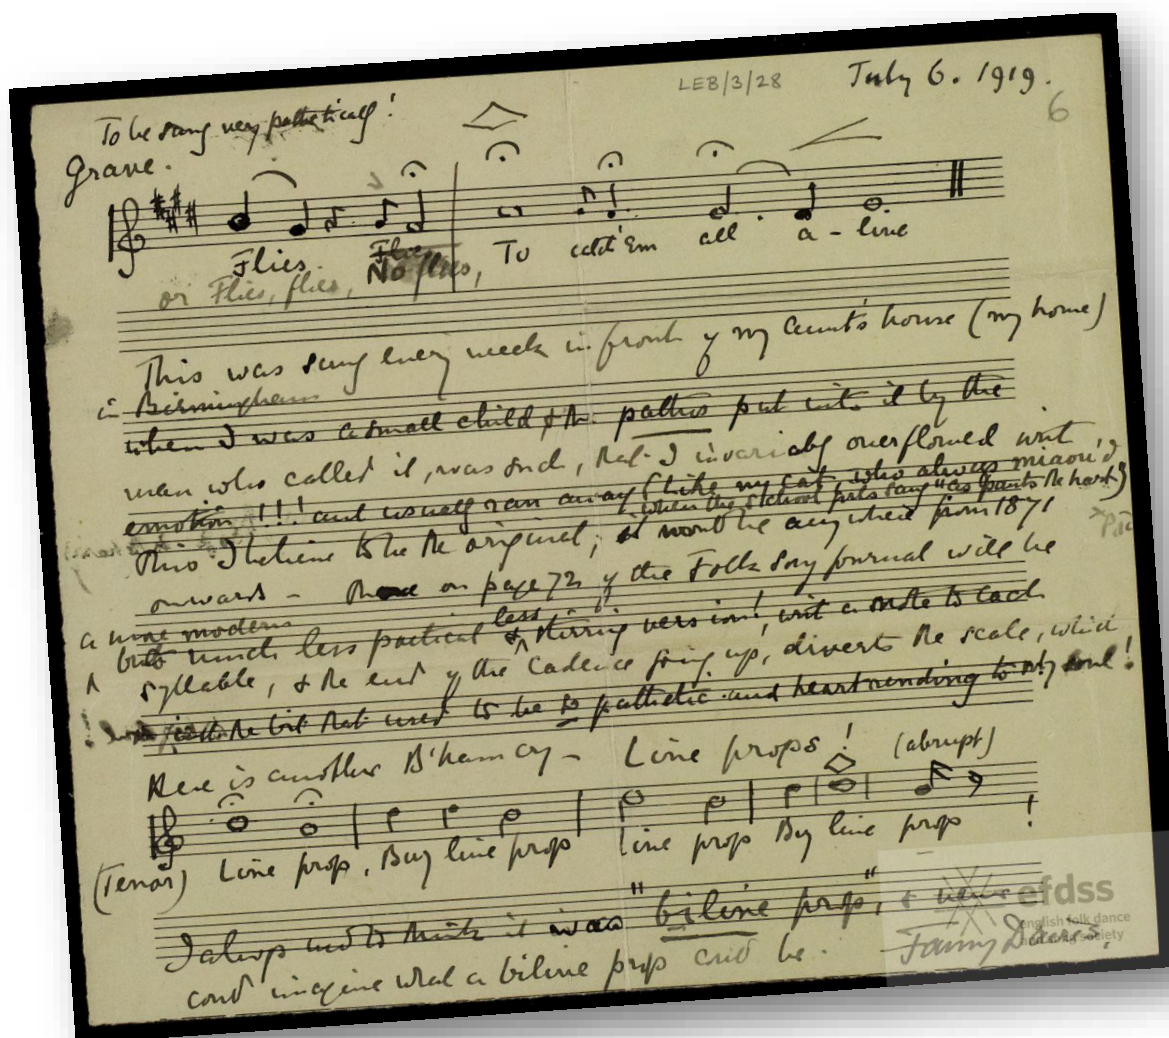 LEB/3/28
July 6. 1919.
6
To be sung very pathetically!
Grave.
Flies No flies, To catch 'Em all a-live
or Flies, flies,
This was sung every week in front of my Aunt's house (my home)
in Birmingham
when I was a small child & the pathos put into it by the
man who called it, was such, that I invariably overflowed with
emotion!!! and usually ran away (like my cat, who always miaou'd
when the school girls sang "as pants the hart")
This I believe to be the original; it would be anywhere from 1871
onwards – on page 72 of the Folk Song Journal will be
a more modern
but much less poetical & less stirring version! with a note to each
syllable, & the end of the Cadence going up, diverts the scale, which
is just the bit that used to be so pathetic and heartrending to my soul!
Here is another B'ham cry – Line props! (abrupt)
(Tenor) Line prop, Buy line prop Line prop Buy line prop!
I always used to think it was "biline prop", & never
could imagine what a biline prop could be. Fanny Davies.
efdss
english folk dance
and song society